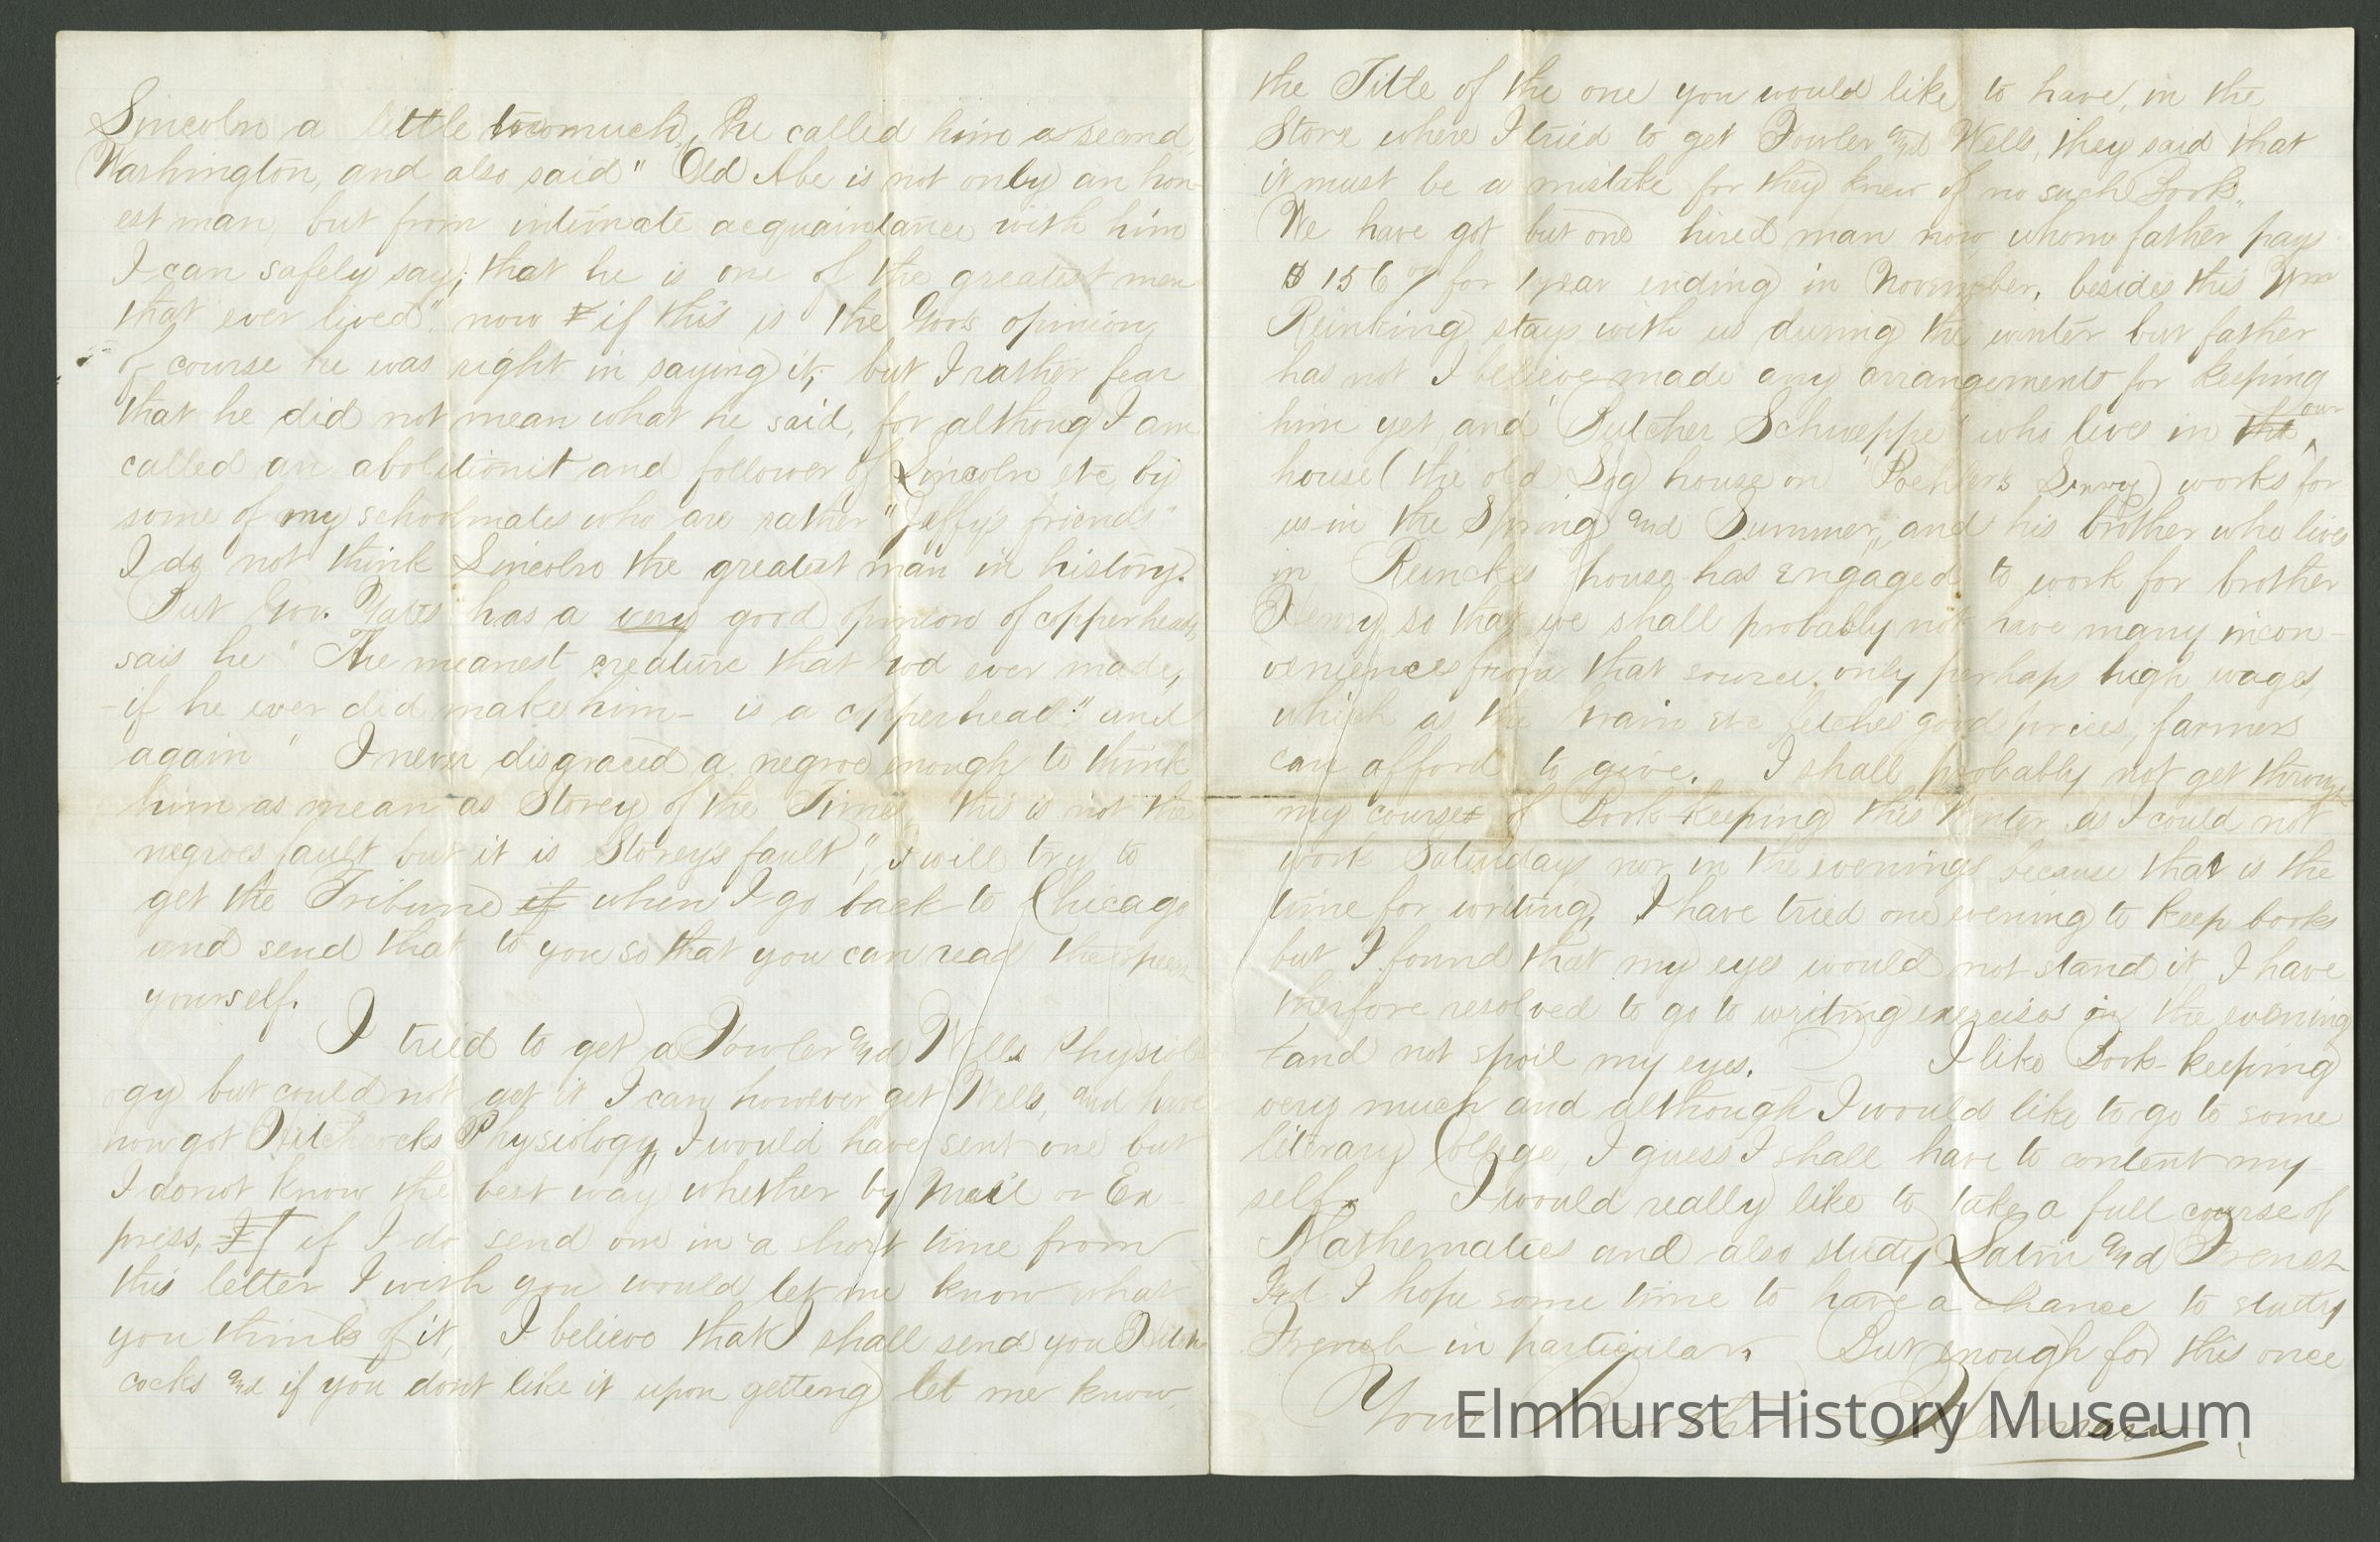 Lincoln a little too much, he called him a second
Washington, and also said" Old Abe is not only an hon-
est man, but from intimate acquaintance with him
I can safely say; that he is one of the greatest men
that ever lived". now if this is the Gov's opinion,
of course he was right in saying it; but I rather fear
that he did not mean what he said, for althoug I am
called an abolitionit and follower of Lincoln etc by
some of my schoolmates who are rather "Jeffy's friends"
I do not think Lincoln the greatest man in history.
But Gov. Yates has a very good opinion of copperheads,
sais he "The meanest creature that God ever made,
-if he ever did make him- is a copperhead." and
again " I never disgraced a negroe enough to think
him as mean as Storey of the Times, this is not the
negroes fault but it is Storey's fault", I will try to
get the Tribune if when I go back to Chicago
and send that to you so that you can read the speech
yourself.
I tried to get a Fowler and Wells Physiolo
gy but could not get it I can however get Wells, and have
now got Hitchcocks Physiology, I would have sent one but
I do not know the best way whether by Mail or Ex-
press, If if I do send one in a short time from
this letter I wish you would let me know what
you think of it, I believe that I shall send you Hitch
cocks and if you dont like it upon getting let me know
the Title of the one you would like to have, in the
Store where I tried to get Fowler and Wells, they said that
it must be a mistake for they knew of no such Book.
We have got but one hired man now whom father pays
$156 for 1 year ending in November, besides this Wm
Reinking stays with us during the winter but father
has not I believe made any arrangements for keeping
him yet, and "Butcher Schweppe" who lives in the our
house (the old Log house on works for
us in the Spring and Summer, and his brother who lives
in house has engaged to work for brother
Henry so that we shall probably not have many incon-
veniences from that source, only perhaps high wages,
which as the etc fetches good prices, farmers
can afford to give. I shall probably not get through
my course of Book-keeping this Winter, as I could not
work Saturdays nor in the evenings because that is the
time for writing, I have tried one evening to keep books
but I found that my eyes would not stand it, I have
therfore resolved to go to writing exercises in the evening
and not spoil my eyes. I like Book-keeping
very much and although I would like to go to some
literary College, I guess I shall have to content my-
self. I would really like to take a full course of
Mathematics and also study Latin and French
And I hope some time to have a chance to study
French in particular. But enough for this once
Your Brother Herman
Elmhurst History Museum